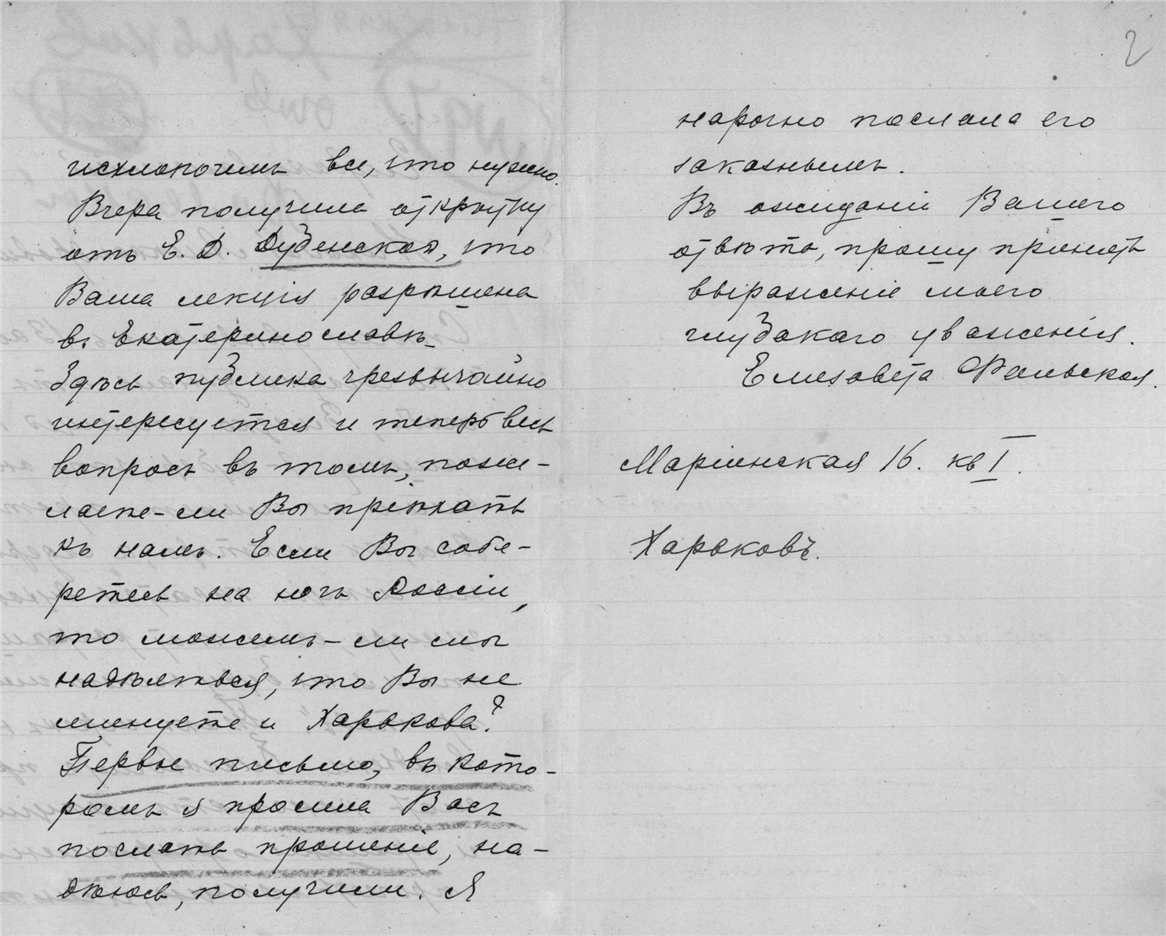 исхлопочимъ все, что нужно.
Вчера получила открытку
отъ Е. Д. Дубенской, что
Ваша лекція разрѣшена
въ Екатеринославѣ.
Здѣсь публика чрезвычайно
интересуется и теперь весь
вопросъ въ томъ, поже-
лаете-ли Вы пріѣхать
къ намъ. Если Вы собе-
ретесь на югъ Россіи,
то можемъ-ли мы
надѣяться, что Вы не
минуете и Харькова?
Первое письмо, въ кото-
ромъ я просила Васъ
послать прошеніе, на-
дѣюсь, получили. Я
2
нарочно послала его
заказнымъ.
Въ ожиданіи Вашего
отвѣта, прошу принять
выраженіе моего
глубокаго уваженія.
Елизавета Фальская.
Маріинская 16. кв I.
Харьковъ.